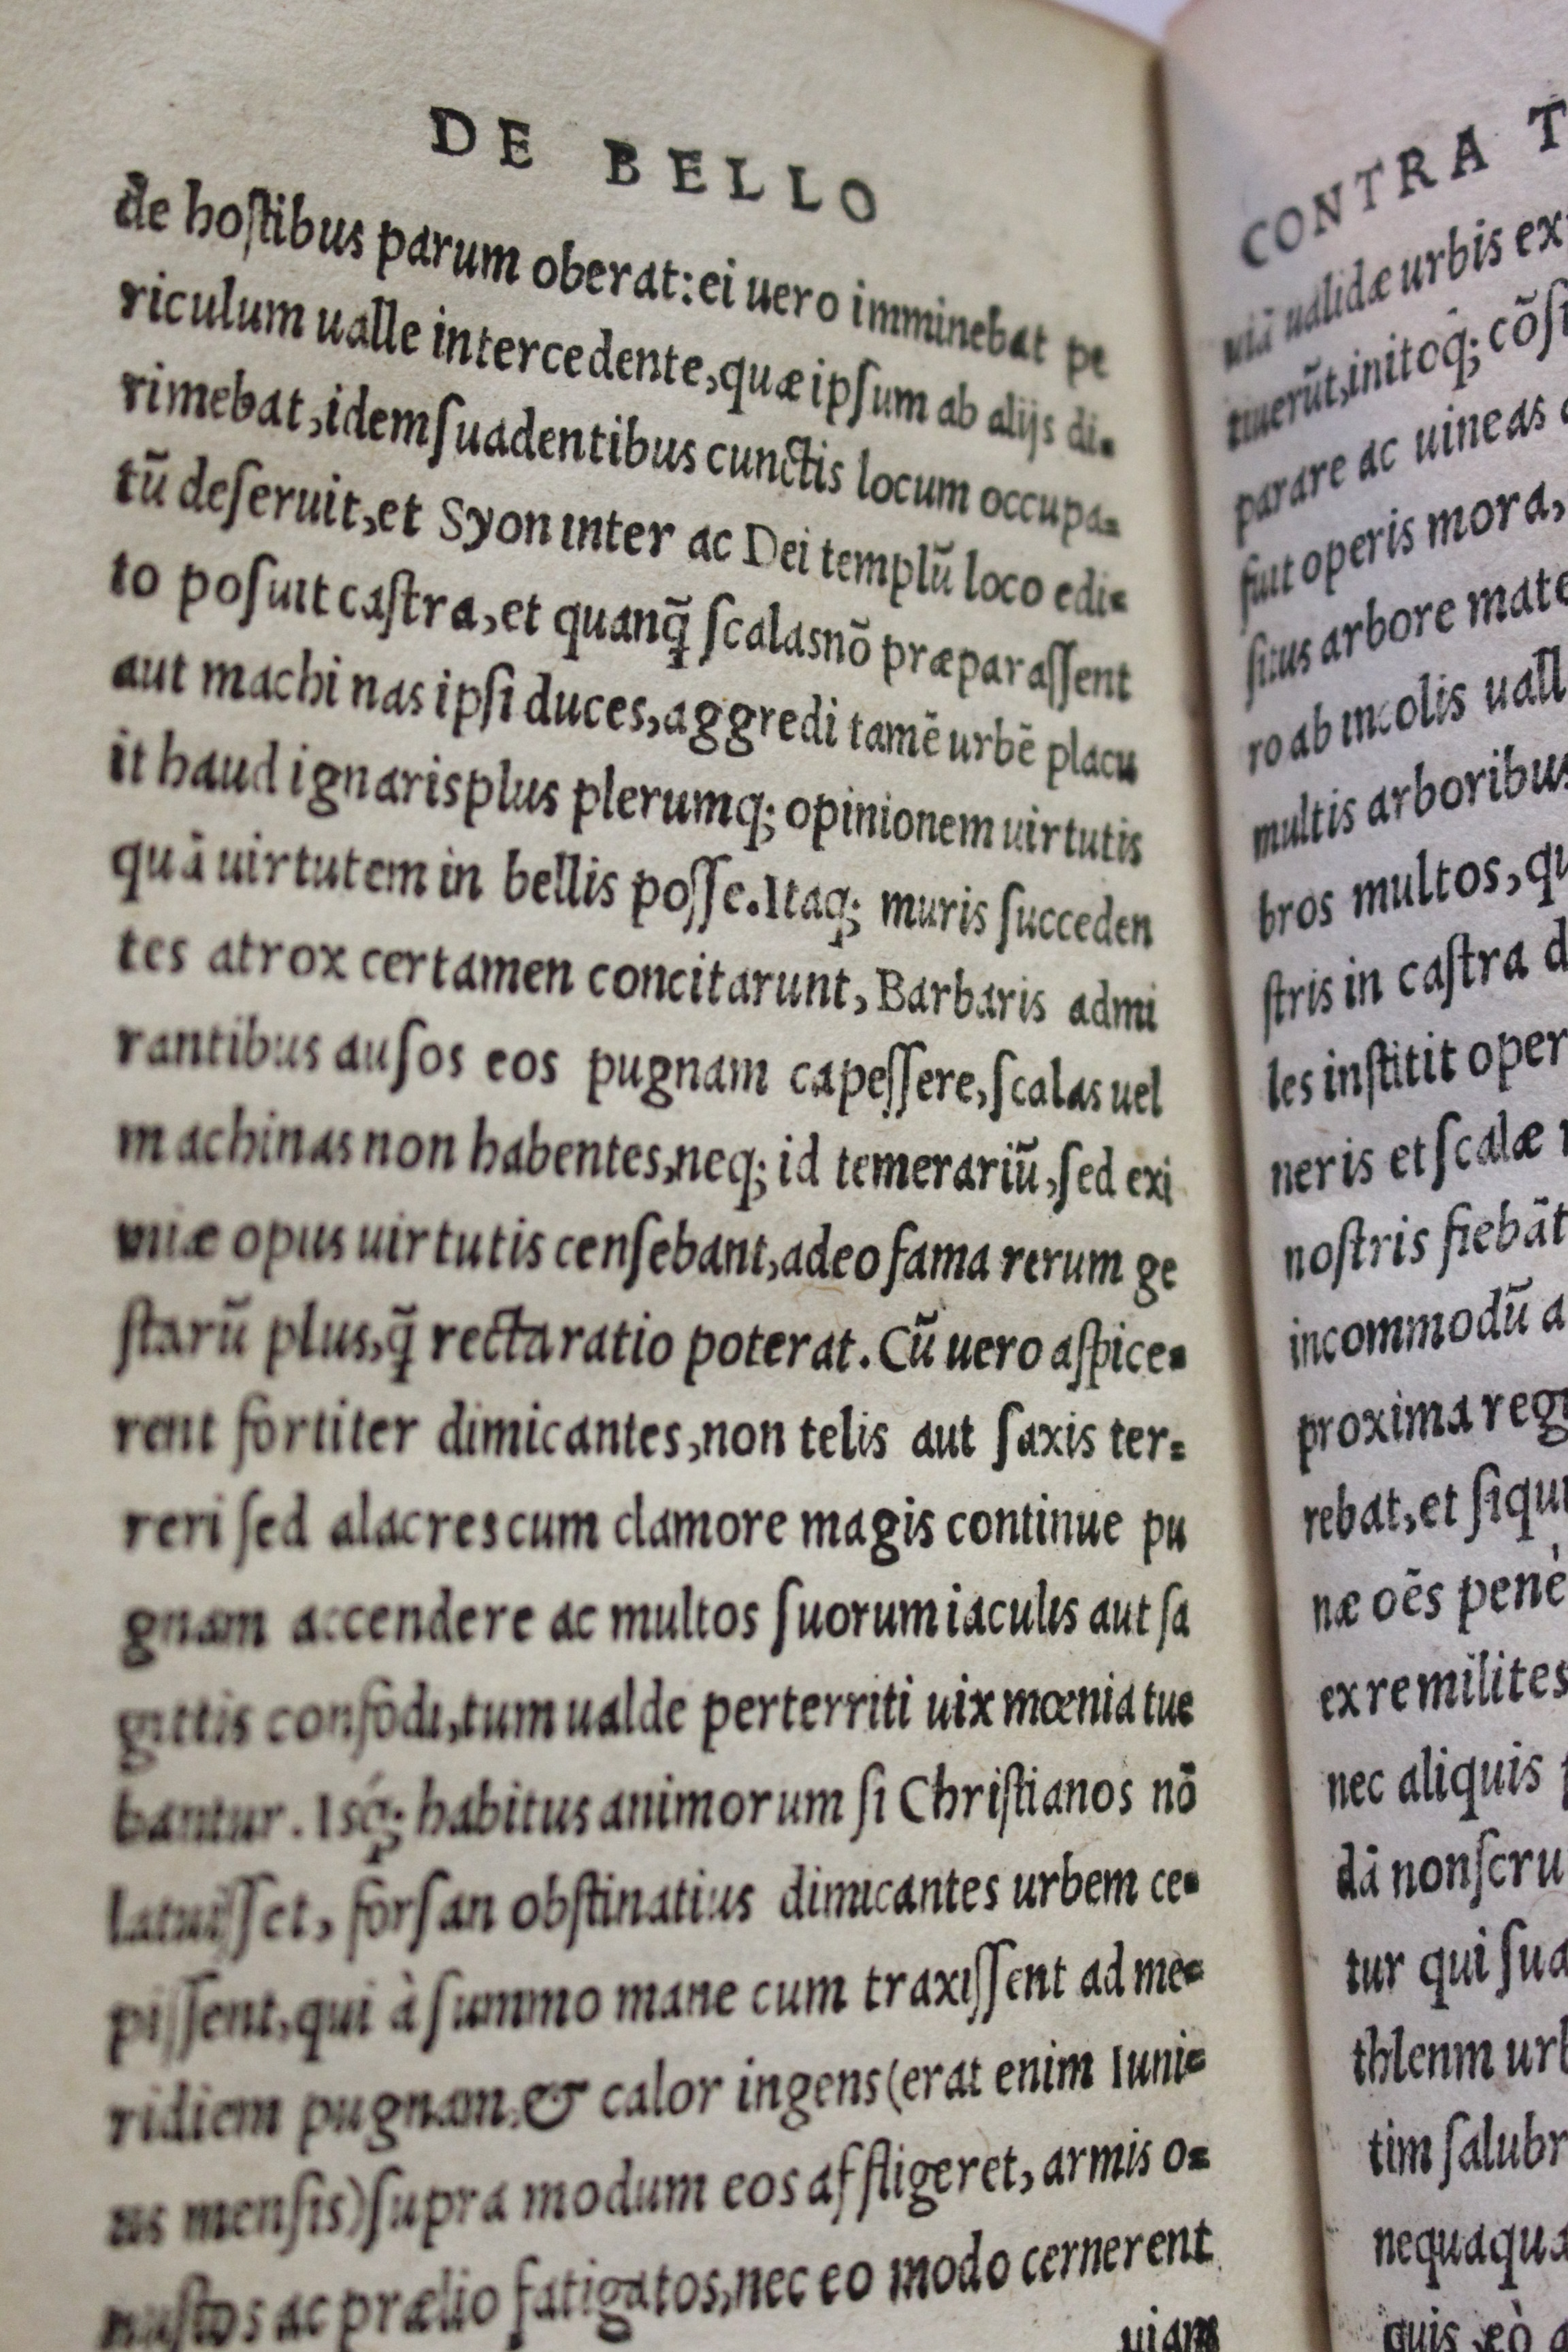 DE BELLO
de hoſtibus parum oberat: ei uero imminebat pe
riculum ualle intercedente, quæ ipſum ab alijs di-
rimebat, idem ſuadentibus cunctis locum occupa-
tũ deſeruit, et Syon inter ac Dei templũ loco edi-
to poſuit caſtra, et quanq̃ ſcalas nõ præparaſſent
aut machinas ipſi duces, aggredi tamẽ urbẽ placu
it haud ignaris plus plerumq; opinionem uirtutis
quã uirtutem in bellis poſſe. Itaq; muris ſucceden
tes atrox certamen concitarunt, Barbaris admi
rantibus auſos eos pugnam capeſſere, ſcalas uel
machinas non habentes, neq; id temerariũ, ſed exi
miæ opus uirtutis cenſebant, adeo fama rerum ge
ſtarũ plus, q̃ recta ratio poterat. Cũ uero aſpice-
rent fortiter dimicantes, non telis aut ſaxis ter-
reri ſed alacres cum clamore magis continue pu
gnam accendere ac multos ſuorum iaculis aut ſa
gittis confodi, tum ualde perterriti uix mœnia tue
bantur. Isq́; habitus animorum ſi Chriſtianos nõ
latuiſſet, forſan obſtinatius dimicantes urbem ce-
piſſent, qui à ſummo mane cum traxiſſent ad me-
ridiem pugnam. & calor ingens (erat enim Iuni-
us menſis) ſupra modum eos affligeret, armis o-
nuſtos ac prælio fatigatos, nec eo modo cernerent
uiam
CONTRA T
uiã ualidæ urbis ex
tuerũt, initoq́; cõſi
parare ac uineas
fuit operis mora,
ſitus arbore mate
ro ab incolis uall
multis arboribus
bros multos, qu
ſtris in caſtra d
les inſtitit oper
neris et ſcalæ
noſtris fiebãt
incommodũ a
proxima reg
rebat, et ſiqui
næ oẽs penè
ex re milites
nec aliquis
dã non ſcru
tur qui ſua
thlenm urb
tim ſalubr
nequaqua
quis eò